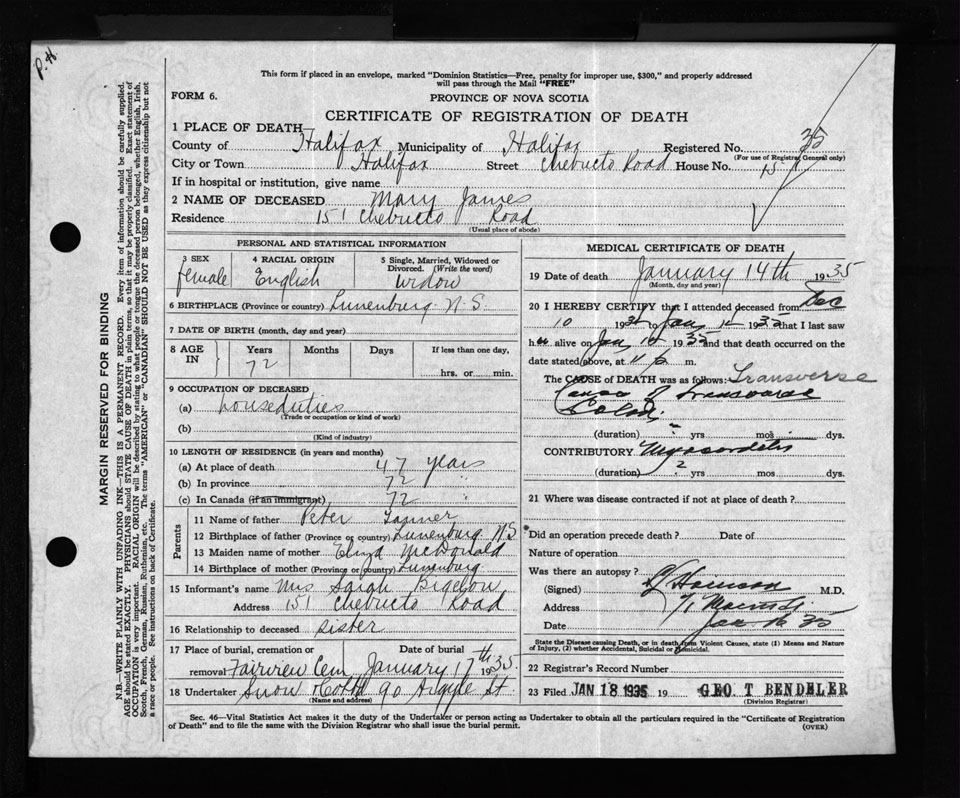 P. H.
This form if placed in an envelope, marked "Dominion Statistics—Free, penalty for improper use, $300," and properly addressed
will pass through the Mail "FREE"
FORM 6.
PROVINCE OF NOVA SCOTIA
CERTIFICATE OF REGISTRATION OF DEATH
1 PLACE OF DEATH
County of Halifax Municipality of Halifax Registered No. 35
(For use of Registrar General only)
City or Town Halifax Street Chebucto Road House No. 151
If in hospital or institution, give name
2 NAME OF DECEASED Mary James
Residence 151 Chebucto Road
(Usual place of abode)
PERSONAL AND STATISTICAL INFORMATION
3 SEX 4 RACIAL ORIGIN 5 Single, Married, Widowed or
Divorced. (Write the word)
female English Widow
6 BIRTHPLACE (Province or country) Lunenburg N.S
7 DATE OF BIRTH (month, day and year)
8 AGE IN Years Months Days If less than one day,
72 hrs. or min.
9 OCCUPATION OF DECEASED
(a) houseduties
(Trade or occupation or kind of work)
(b)
(Kind of industry)
10 LENGTH OF RESIDENCE (in years and months)
(a) At place of death 47 years
(b) In province 72
(c) In Canada (if an immigrant) 72
Parents
11 Name of father Peter Tanner
12 Birthplace of father (Province or country) Lunenburg N.S
13 Maiden name of mother Eliza McDonald
14 Birthplace of mother (Province or country) Lunenburg
15 Informant's name Mrs Sarah Bigelow
Address 151 Chebucto Road
16 Relationship to deceased sister
17 Place of burial, cremation or Date of burial
removal Fairview Cem January 17th 1935.
18 Undertaker Snow 90 Argyle St.
(Name and address)
MEDICAL CERTIFICATE OF DEATH
19 Date of death January 14th 1935
(Month, day and year)
20 I HEREBY CERTIFY that I attended deceased from Dec
10 1934 to Jan 14 1935 that I last saw
her alive on Jan 14 1935 and that death occurred on the
date stated above, at 11 p m.
The CAUSE of DEATH was as follows: Transverse
Cancer of Transverse
Colon
(duration) yrs mos dys.
CONTRIBUTORY Myocarditis
(duration) 2 yrs mos dys.
21 Where was disease contracted if not at place of death?
Did an operation precede death? Date of
Nature of operation
Was there an autopsy?
(Signed) M.D.
Address 71
Date Jan 16 35
State the Disease causing Death, or in death from Violent Causes, state (1) Means and Nature
of Injury, (2) whether Accidental, Suicidal or Homicidal.
22 Registrar's Record Number
23 Filed JAN 18 1935 19 GEO. T BENDELER
(Division Registrar)
Sec. 46—Vital Statistics Act makes it the duty of the Undertaker or person acting as Undertaker to obtain all the particulars required in the "Certificate of Registration
of Death" and to file the same with the Division Registrar who shall issue the burial permit.
(OVER)
MARGIN RESERVED FOR BINDING
N.B.—WRITE PLAINLY WITH UNFADING INK—THIS IS A PERMANENT RECORD. Every item of information should be carefully supplied.
AGE should be stated EXACTLY. PHYSICIANS should STATE CAUSE OF DEATH in plain terms, so that it may be properly classified. Exact statement of
OCCUPATION is very important. RACIAL ORIGIN will be described by stating to what people or tongue the deceased person belonged, whether English, Irish,
Scotch, French, German, Russian, Ruthenian, etc. The terms "AMERICAN" or "CANADIAN" SHOULD NOT BE USED as they express citizenship but not
a race or people. See instructions on back of Certificate.